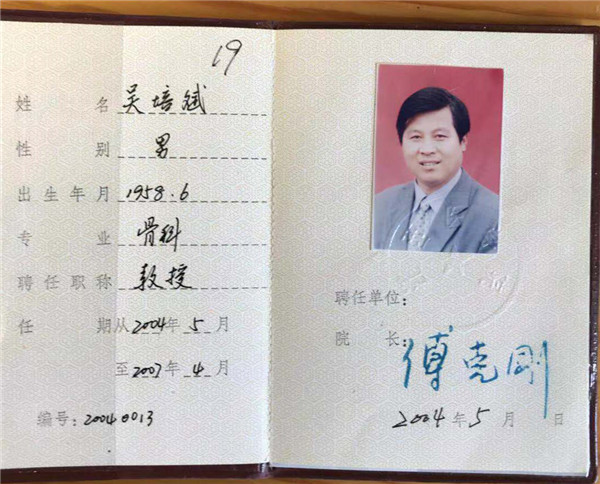 19
姓 名 吴培斌
性 别 男
出生年月 1958.6
专 业 骨科
聘任职称 教授
任 期从2004年5月
至2007年4月
编号:20040013
聘任单位:
院 长:傅克刚
2004年5月 日